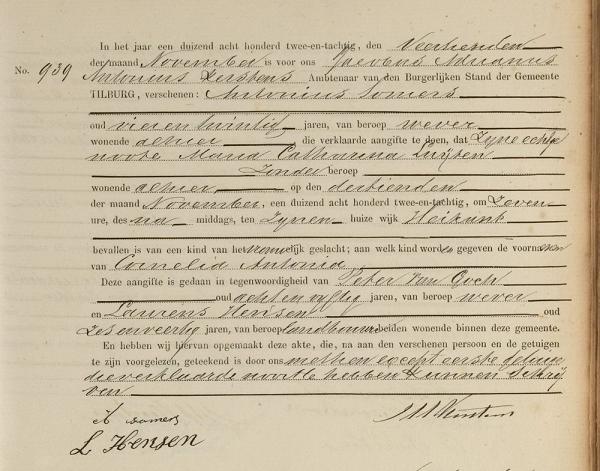 In het jaar een duizend acht honderd twee-en-tachtig, den Veertienden
der maand November is voor ons Jacobus Adrianus
No. 939 Antonius Kerstens Ambtenaar van den Burgerlijken Stand der Gemeente
TILBURG, verschenen: Antonius Somers
oud vier en twintig jaren, van beroep wever
wonende alhier die verklaarde aangifte te doen, dat Zijne echtge
noote Maria Catharina Luijten
Zonder beroep
wonende alhier op den dertienden
der maand November, een duizend acht honderd twee-en-tachtig, om Zeven
ure, des na middags, ten Zijnen huize wijk Heikant
bevallen is van een kind van het vrouwelijk geslacht; aan welk kind worden gegeven de voornamen
van Cornelia Antonia
Deze aangifte is gedaan in tegenwoordigheid van Peter van Gorh
oud acht en vyftig jaren, van beroep wever
en Laurens Hensen oud
Zes en veertig jaren, van beroep landbouwer beiden wonende binnen deze gemeente.
En hebben wij hiervan opgemaakt deze akte, die, na aan den verschenen persoon en de getuigen
te zijn voorgelezen, geteekend is door ons met hen except eerste getuige
die verklaarde nooit te hebben kunnen schrij
ven
A Somers
L Hensen